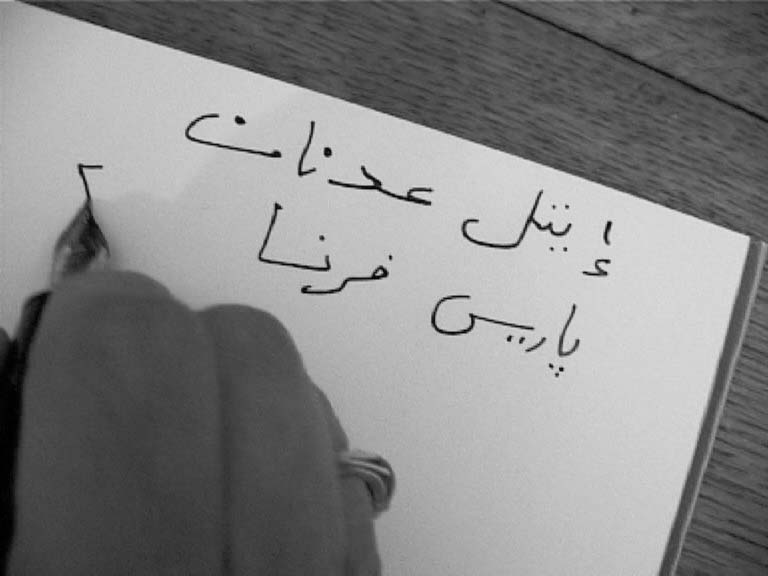 إيتل عدنان
پاريس فرنسا ٢